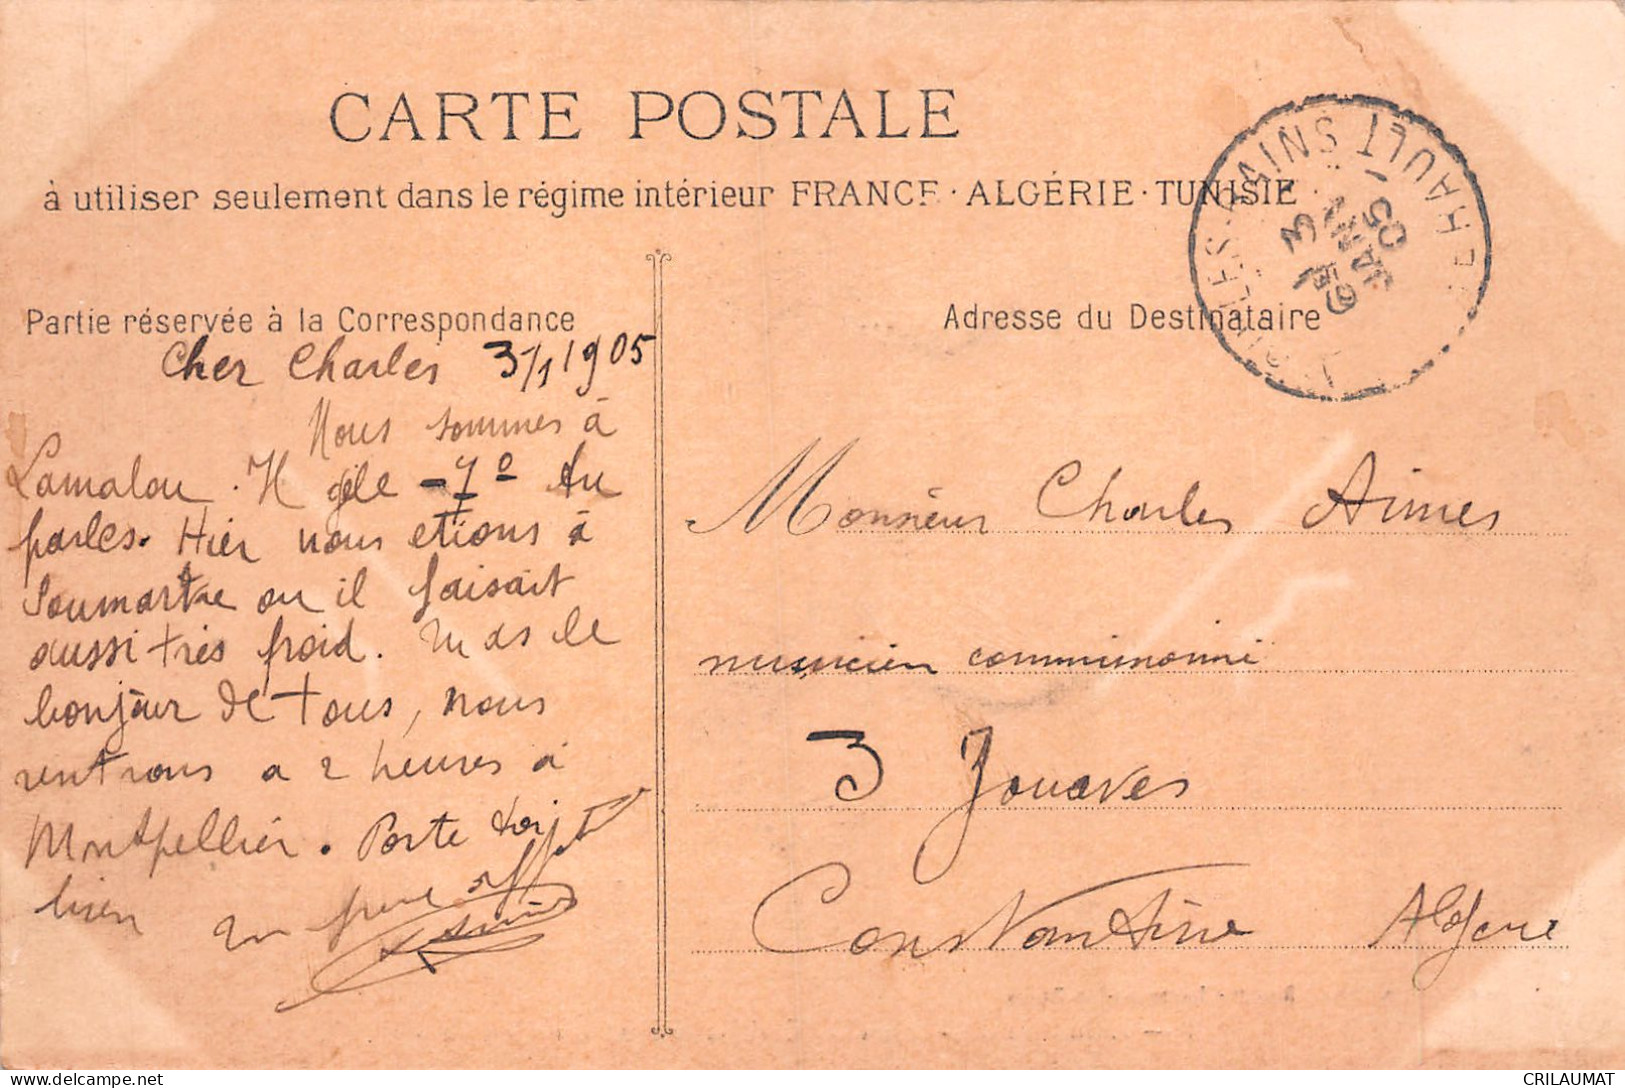 CARTE POSTALE
à utiliser seulement dans le régime intérieur FRANCE · ALGÉRIE · TUNISIE
Partie réservée à la Correspondance
Cher Charles 3/1 1905
Nous sommes à
Lamalou. Il gèle -7º tu
parles. Hier nous etions à
Soumartre ou il faisait
aussi très froid. Tu as le
bonjour de tous, nous
rentrons a 2 heures à
Montpellier. Porte toi
bien
Adresse du Destinataire
HAULT
3
JANV
05
Monsieur Charles Aimes
musicien commissionné
3 Zouaves
Constantine Algerie
CRILAUMAT